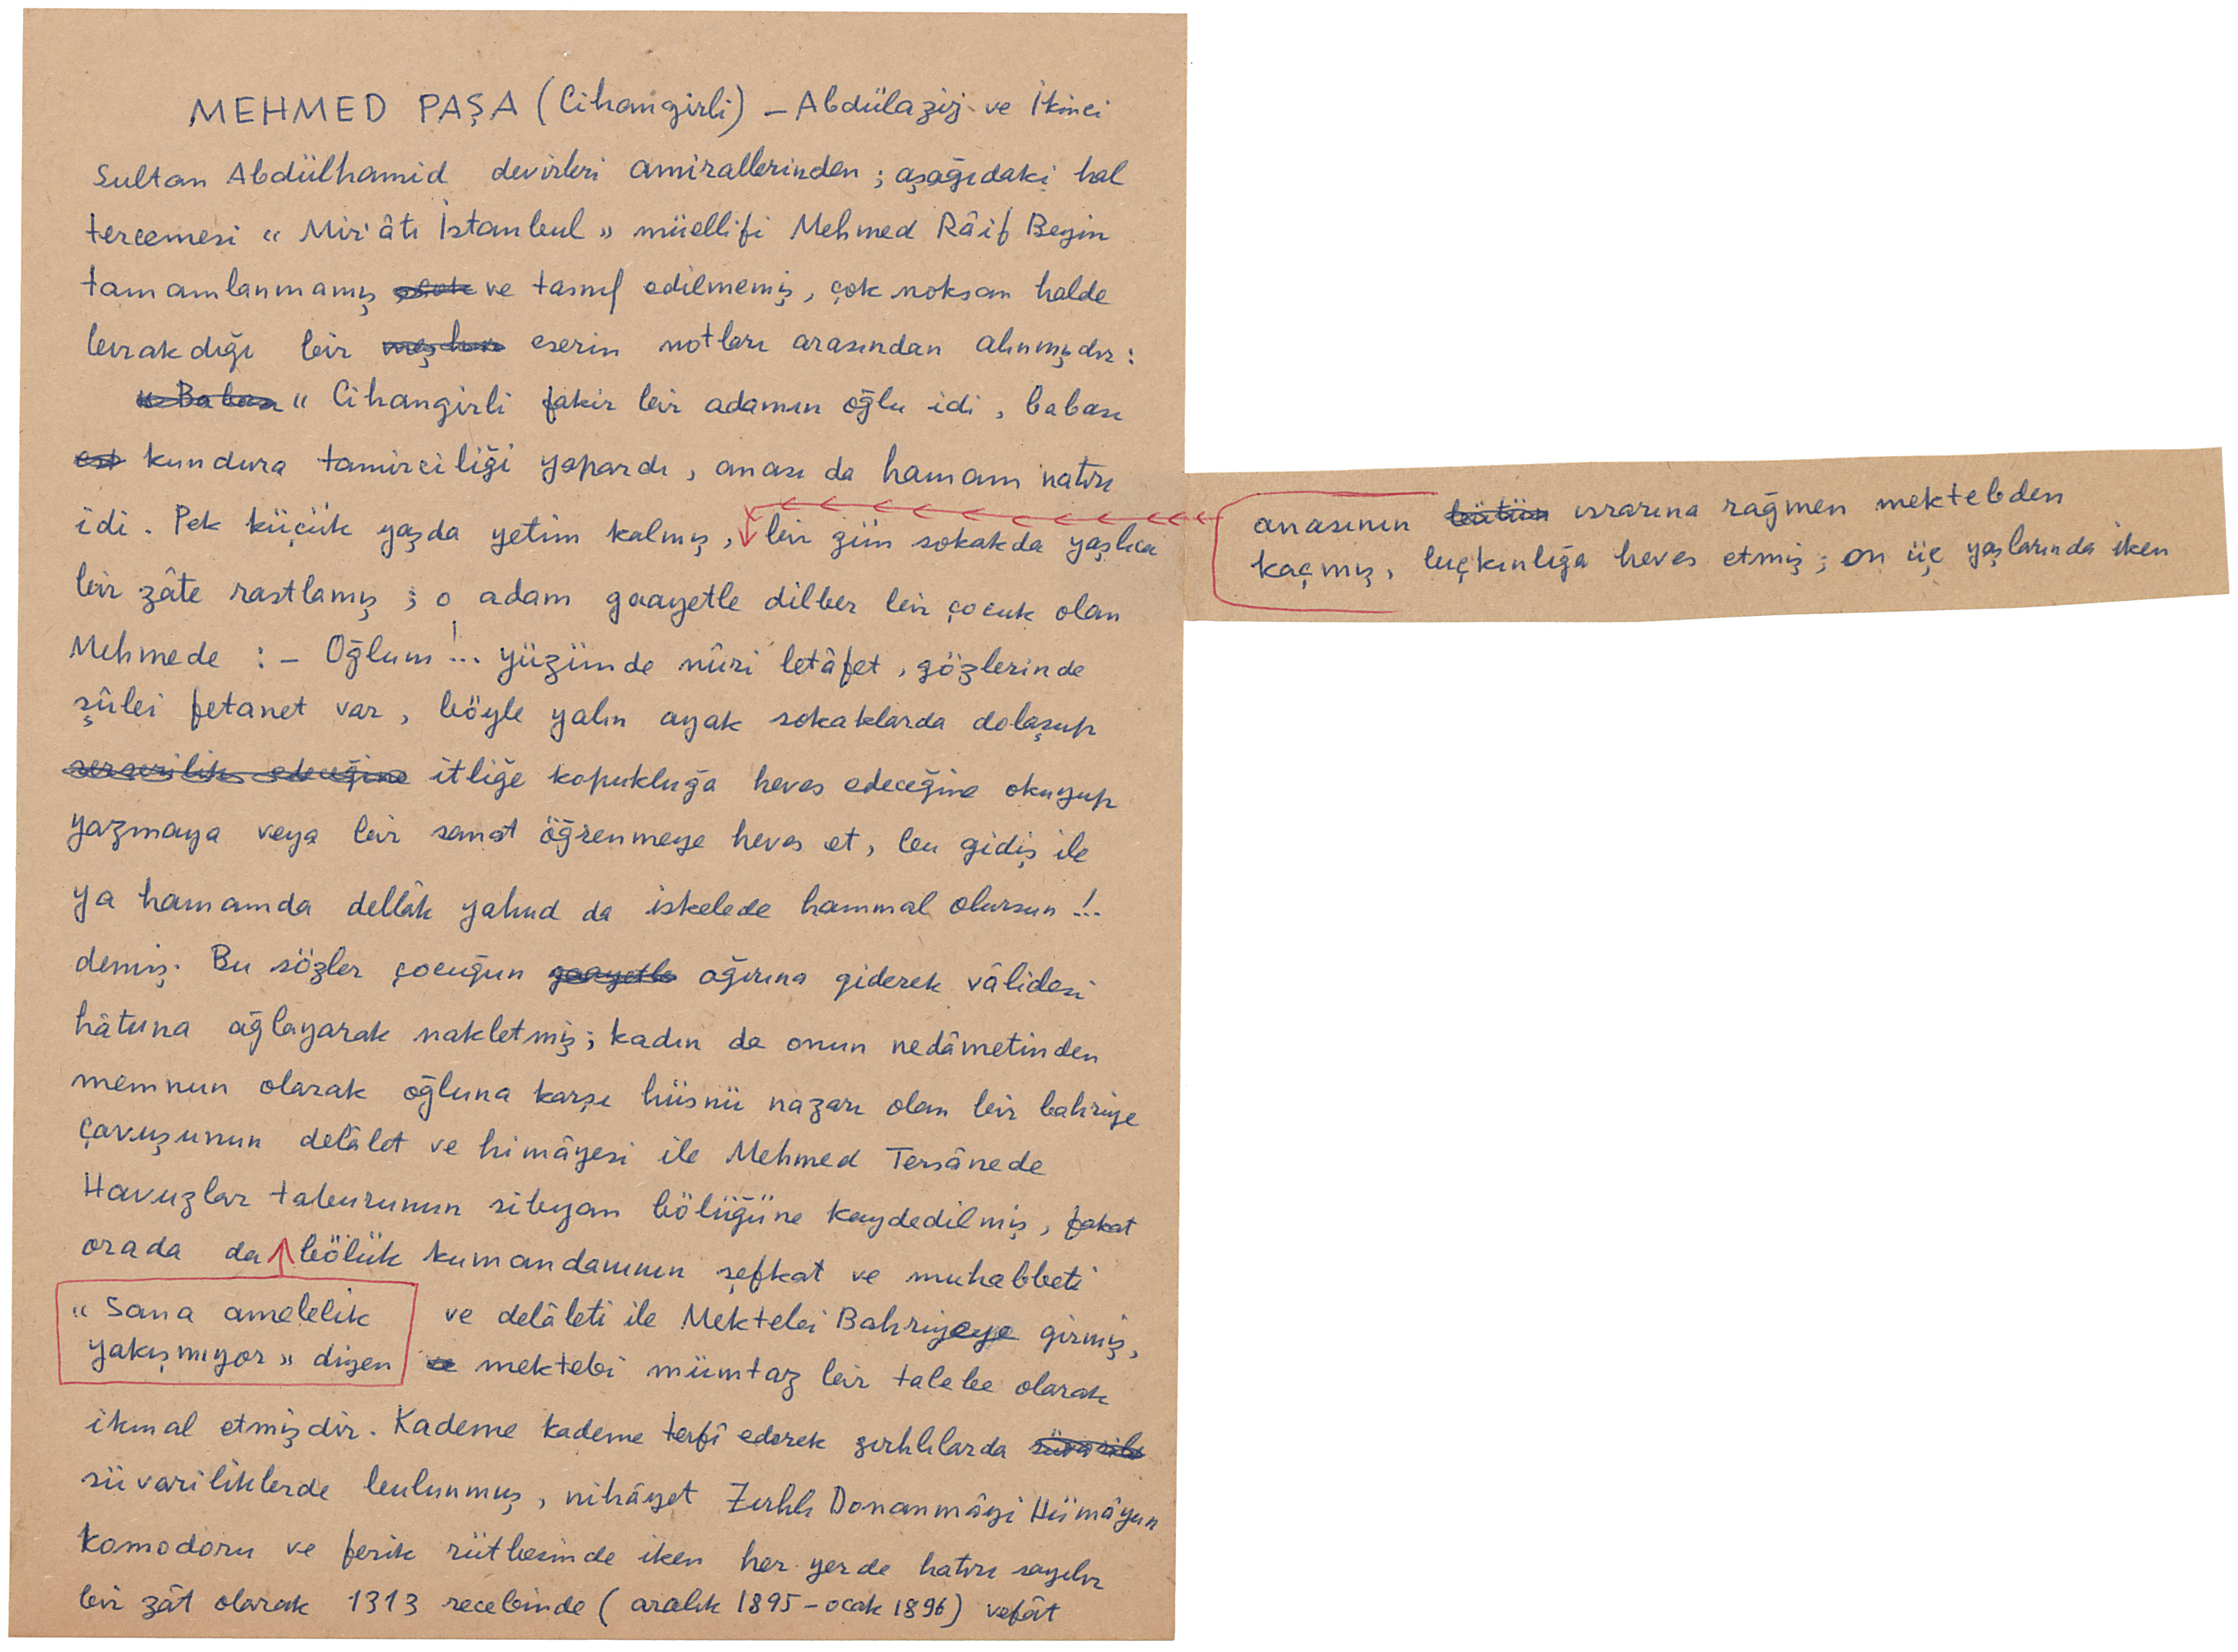 MEHMED PAŞA (Cihangirli) – Abdülaziz ve İkinci
Sultan Abdülhamid devirleri amirallerinden ; aşağıdaki hal
tercemesi « Mir'âtı İstanbul » müellifi Mehmed Râif Beyin
tamamlanmamış ve tasnif edilmemiş, çok noksan halde
bırakdığı bir eserin notları arasından alınmışdır :
« Cihangirli fakir bir adamın oğlu idi, babası
kundura tamirciliği yapardı, anası da hamam natırı
idi. Pek küçük yaşda yetim kalmış, bir gün sokakda yaşlıca
anasının bütün ısrarına rağmen mektebden
kaçmış, uçkınlığa heves etmiş ; on üç yaşlarında iken
bir zâte rastlamış ; o adam gaayetle dilber bir çocuk olan
Mehmede : – Oğlum !... yüzünde nûri letâfet, gözlerinde
şûlei fetanet var, böyle yalın ayak sokaklarda dolaşup
serserilik edeceğine itliğe kopukluğa heves edeceğine okuyup
yazmaya veya bir sanat öğrenmeye heves et, bu gidiş ile
ya hamamda dellâk yahud da iskelede hammal olursun !..
demiş. Bu sözler çocuğun gaayetle ağırına giderek vâlidesi
hâtuna ağlayarak nakletmiş ; kadın da onun nedâmetinden
memnun olarak oğluna karşı hüsnü nazarı olan bir bahriye
çavuşunun delâlet ve himâyesi ile Mehmed Tersânede
Havuzlar taburunun sibyan bölüğüne kaydedilmiş, fakat
orada da bölük kumandanının şefkat ve muhabbeti
« Sana amelelik
yakışmıyor » diyen
ve delâleti ile Mektebi Bahriyeye girmiş,
ve mektebi mümtaz bir talebe olarak
ikmal etmişdir. Kademe kademe terfî ederek zırhlılarda
süvariliklerde bulunmuş, nihâyet Zırhlı Donanmâyi Hümâyun
Komodoru ve ferik rütbesinde iken her yerde hatırı sayılır
bir zât olarak 1313 recebinde ( aralık 1895 – ocak 1896) vefât